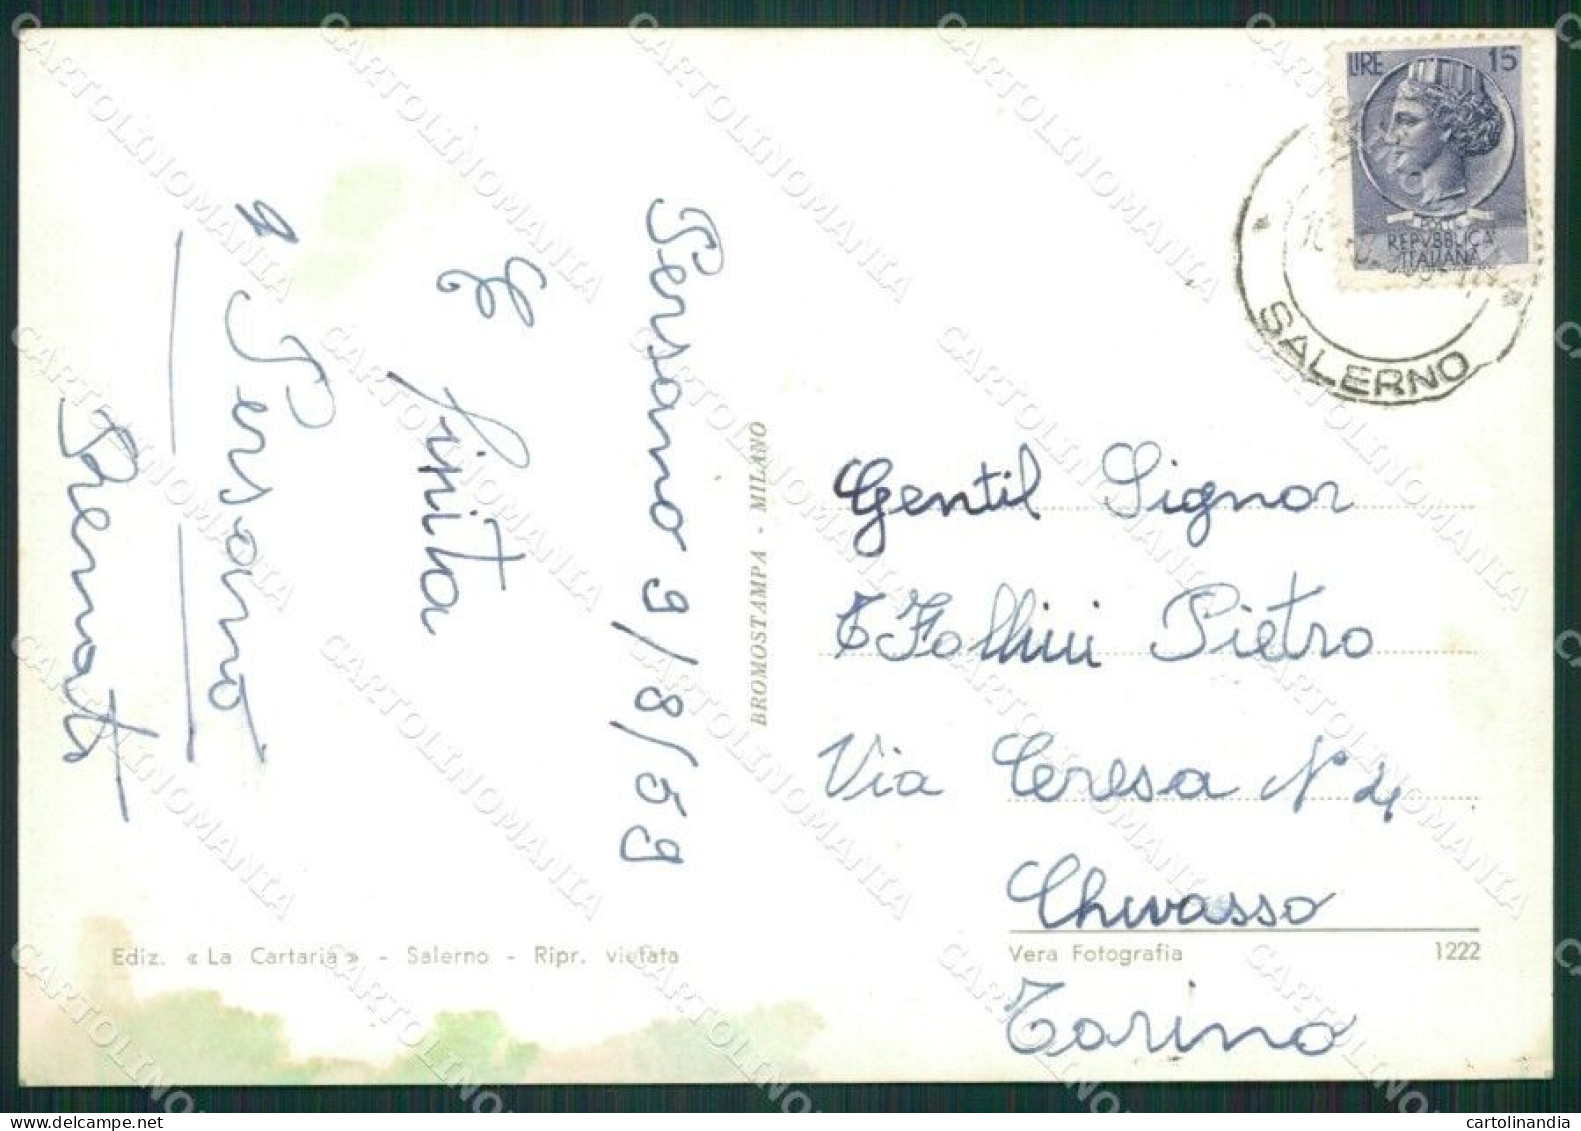 Persano 9/8/59
E finita
a Persano
Renato
BROMOSTAMPA - MILANO
LIRE 15
POSTE
REPVBBLICA
ITALIANA
SALERNO
Gentil Signor
Follini Pietro
Via Teresa N 4
Chivasso
Torino
Ediz. « La Cartaria » - Salerno - Ripr. vietata
Vera Fotografia 1222
CARTOLINOMANIA
cartolinandia